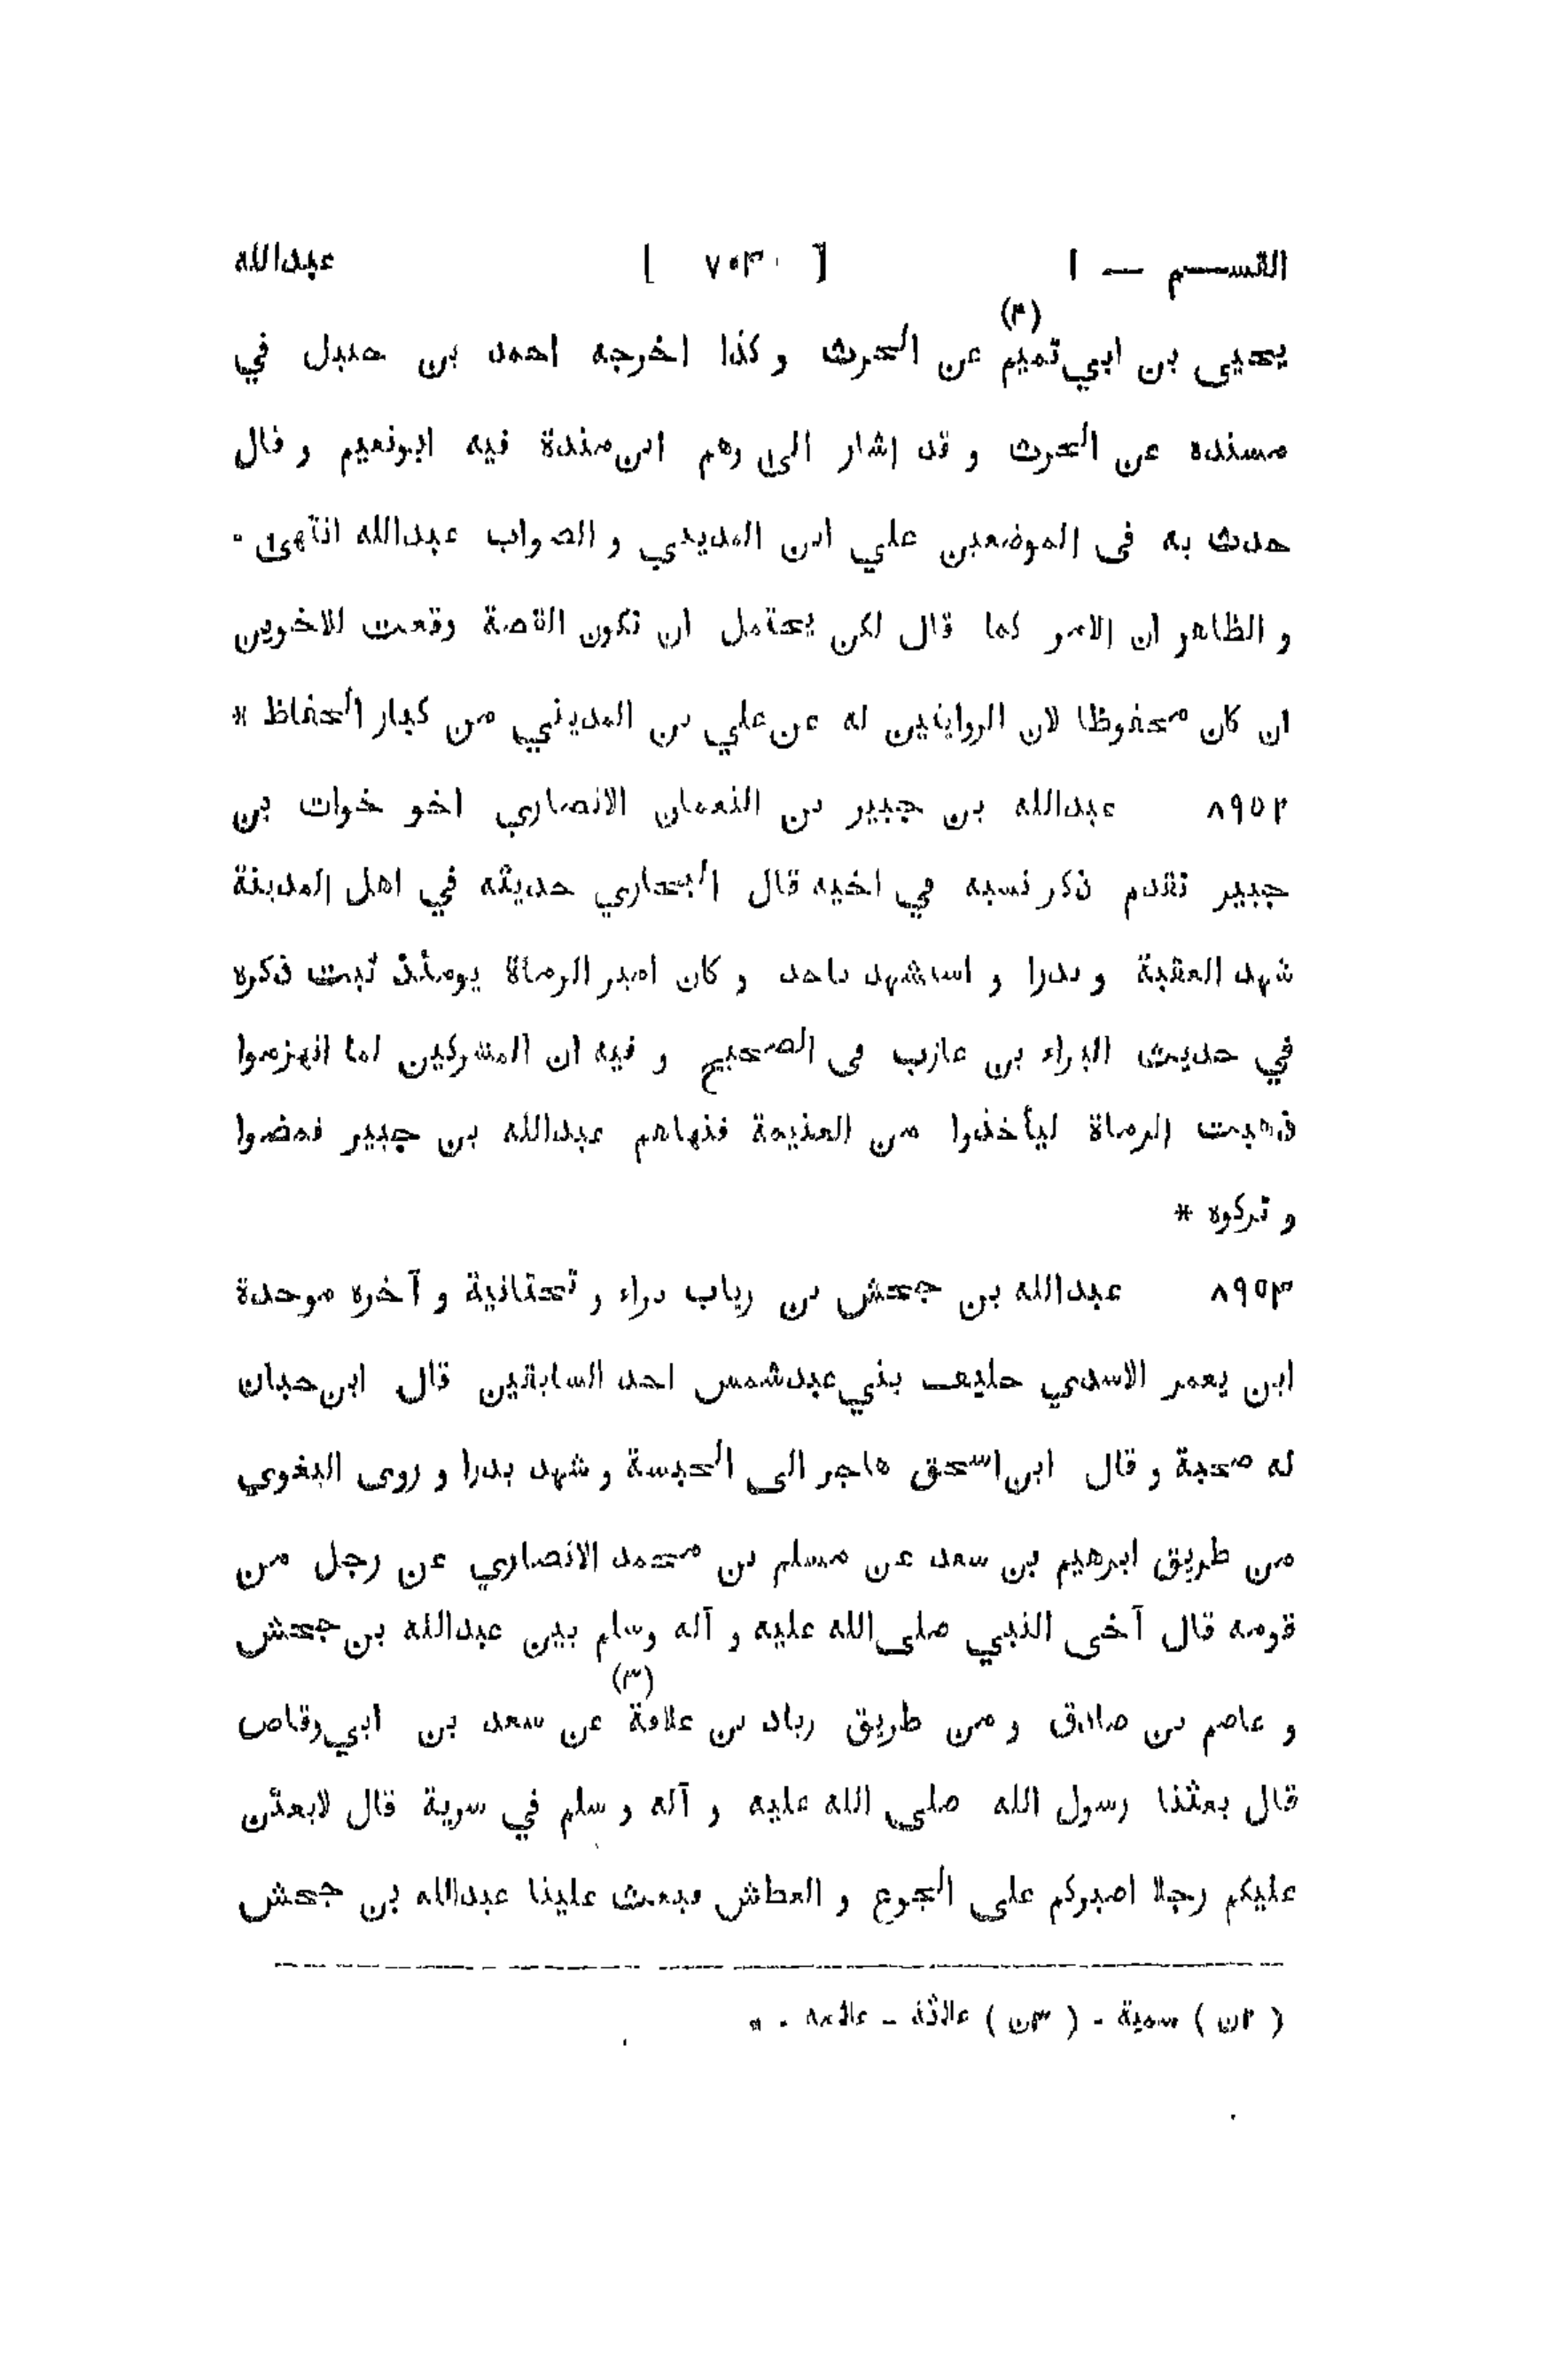 القسم — ١ [ ٧٠٣٠ ] عبدالله
يحيى بن ابي تميم (٢) عن الحرث و كذا اخرجه احمد بن حنبل في
مسنده عن الحرث و قد اشار الى وهم ابن مندة فيه ابونعيم و قال
حدث به فى الموضعين علي ابن المديني و الصواب عبدالله انتهى .
و الظاهر ان الامر كما قال لكن يحتمل ان تكون القصة وقعت للاخوين
ان كان محفوظا لان الروايتين له عن علي بن المديني من كبار الحفاظ *
٨٩٥٢ عبدالله بن جبير بن النعمان الانصاري اخو خوات بن
جبير تقدم ذكر نسبه في اخيه قال البخاري حديثه في اهل المدينة
شهد العقبة و بدرا و استشهد باحد و كان امير الرماة يومئذ ثبت ذكره
في حديث البراء بن عازب فى الصحيح و فيه ان المشركين لما انهزموا
ذهبت الرماة ليأخذوا من الغنيمة فنهاهم عبدالله بن جبير فمضوا
و تركوه *
٨٩٥٣ عبدالله بن جحش بن رياب براء و تحتانية و آخره موحدة
ابن يعمر الاسدي حليف بني عبدشمس احد السابقين قال ابن حبان
له صحبة و قال ابن اسحق هاجر الى الحبسة و شهد بدرا و روى البغوي
من طريق ابرهيم بن سعد عن مسلم بن محمد الانصاري عن رجل من
قومه قال آخى النبي صلى الله عليه و آله وسلم بين عبدالله بن جحش
و عاصم بن صادق و من طريق رباد بن علامة (٣) عن سعد بن ابي وقاص
قال بعثنا رسول الله صلى الله عليه و آله و سلم في سرية قال لابعثن
عليكم رجلا اصبركم على الجوع و العطش فبعث علينا عبدالله بن جحش
( ٢ن ) سمية - ( ٣ن ) علاثة -